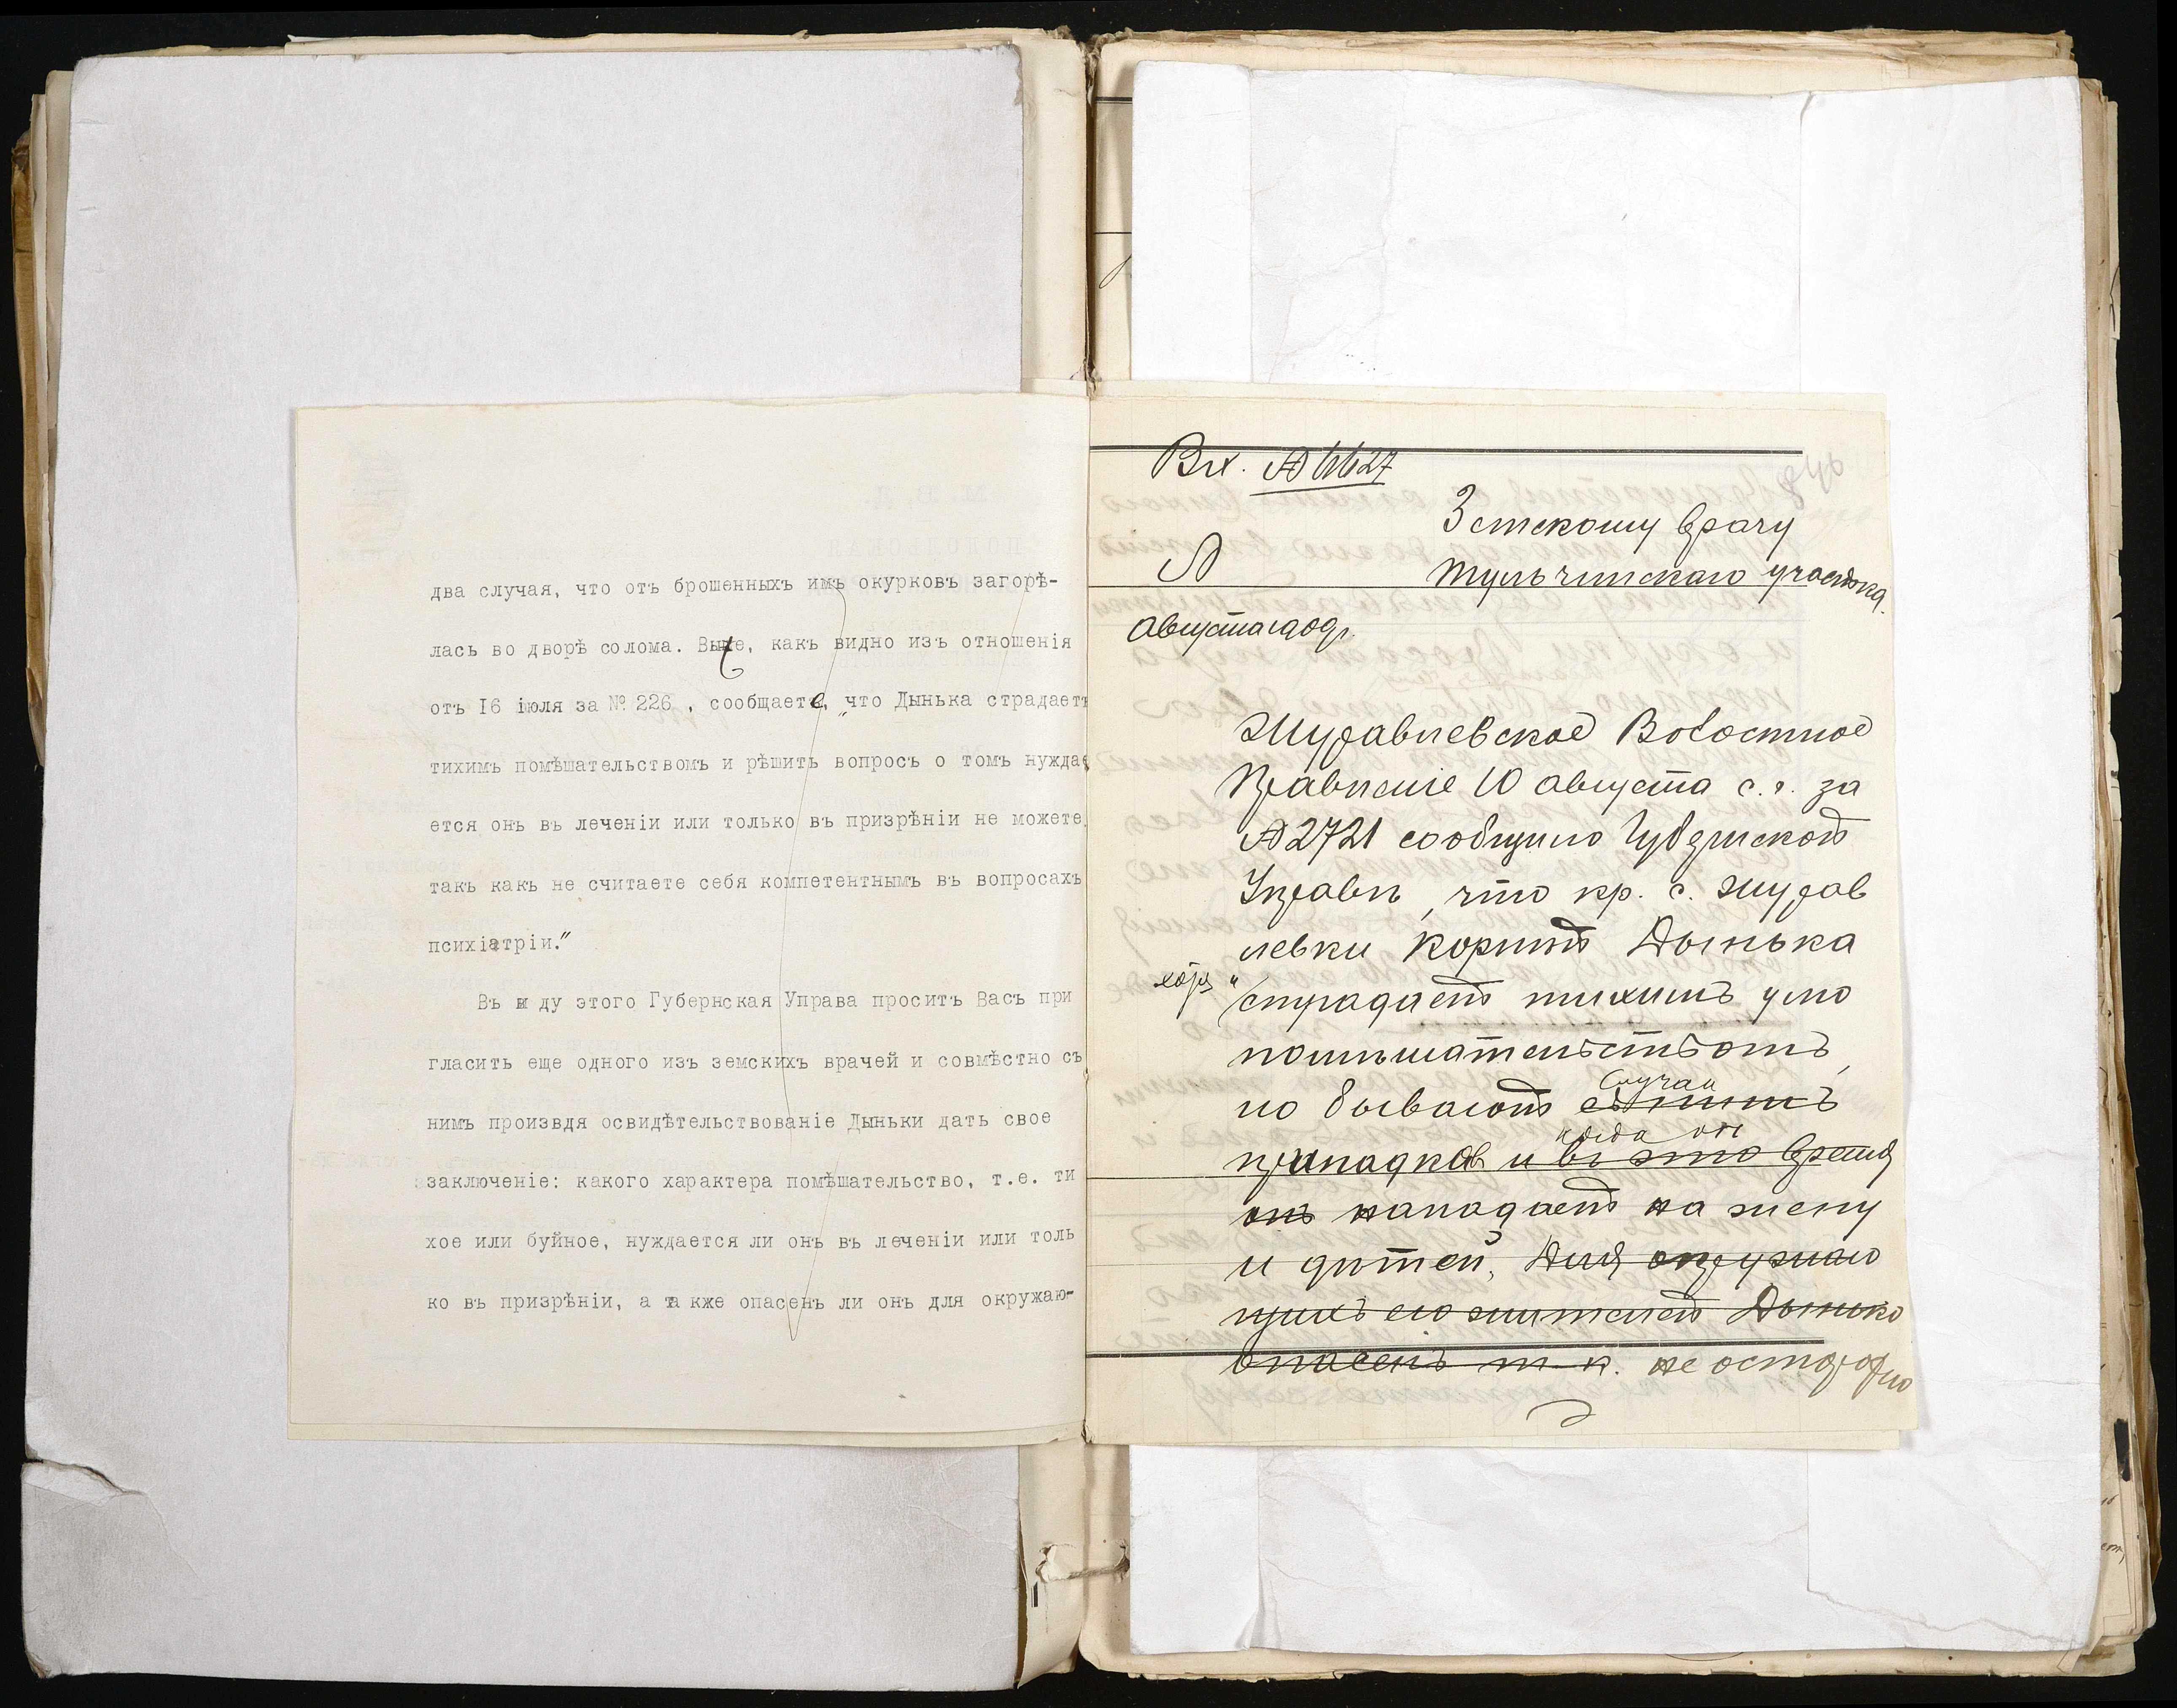 два случая, что отъ брошенныхъ имъ окурковъ загорѣ-
лась во дворѣ солома. Вы же, какъ видно изъ отношенія
отъ I6 іюля за № 226 , сообщаете, "что Дынька страдаетъ
тихимъ помѣшательствомъ и рѣшить вопросъ о томъ нужда
ется онъ въ леченіи или только въ призрѣніи не можете,
такъ какъ не считаете себя компетентнымъ въ вопросахъ
психіатріи."
Въ виду этого Губернская Управа проситъ Васъ при
гласить еще одного изъ земскихъ врачей и совмѣстно съ
нимъ произвдя освидѣтельствованіе Дыньки дать свое
заключеніе: какого характера помѣшательство, т.е. ти
хое или буйное, нуждается ли онъ въ леченіи или толь
ко въ призрѣніи, а также опасенъ ли онъ для окружаю-
Вх. №
Земскому врачу
Тульчинскаго участка.
августа 1909г.
Журавлевское Волостное
Правленіе 10 августа с.г. за
№2721 сообщило Губернской
Управѣ, что кр. с. Журав
левки Корнит Дынька
"страдает тихимъ умо
помѣшательствомъ,
случаи
но бывают съ нимъ
когда он
припадков и въ это время
онъ нападает на жену
и дѣтей, Для окружаю
щихъ его жителей Дынько
опасенъ т.к. не осторожно